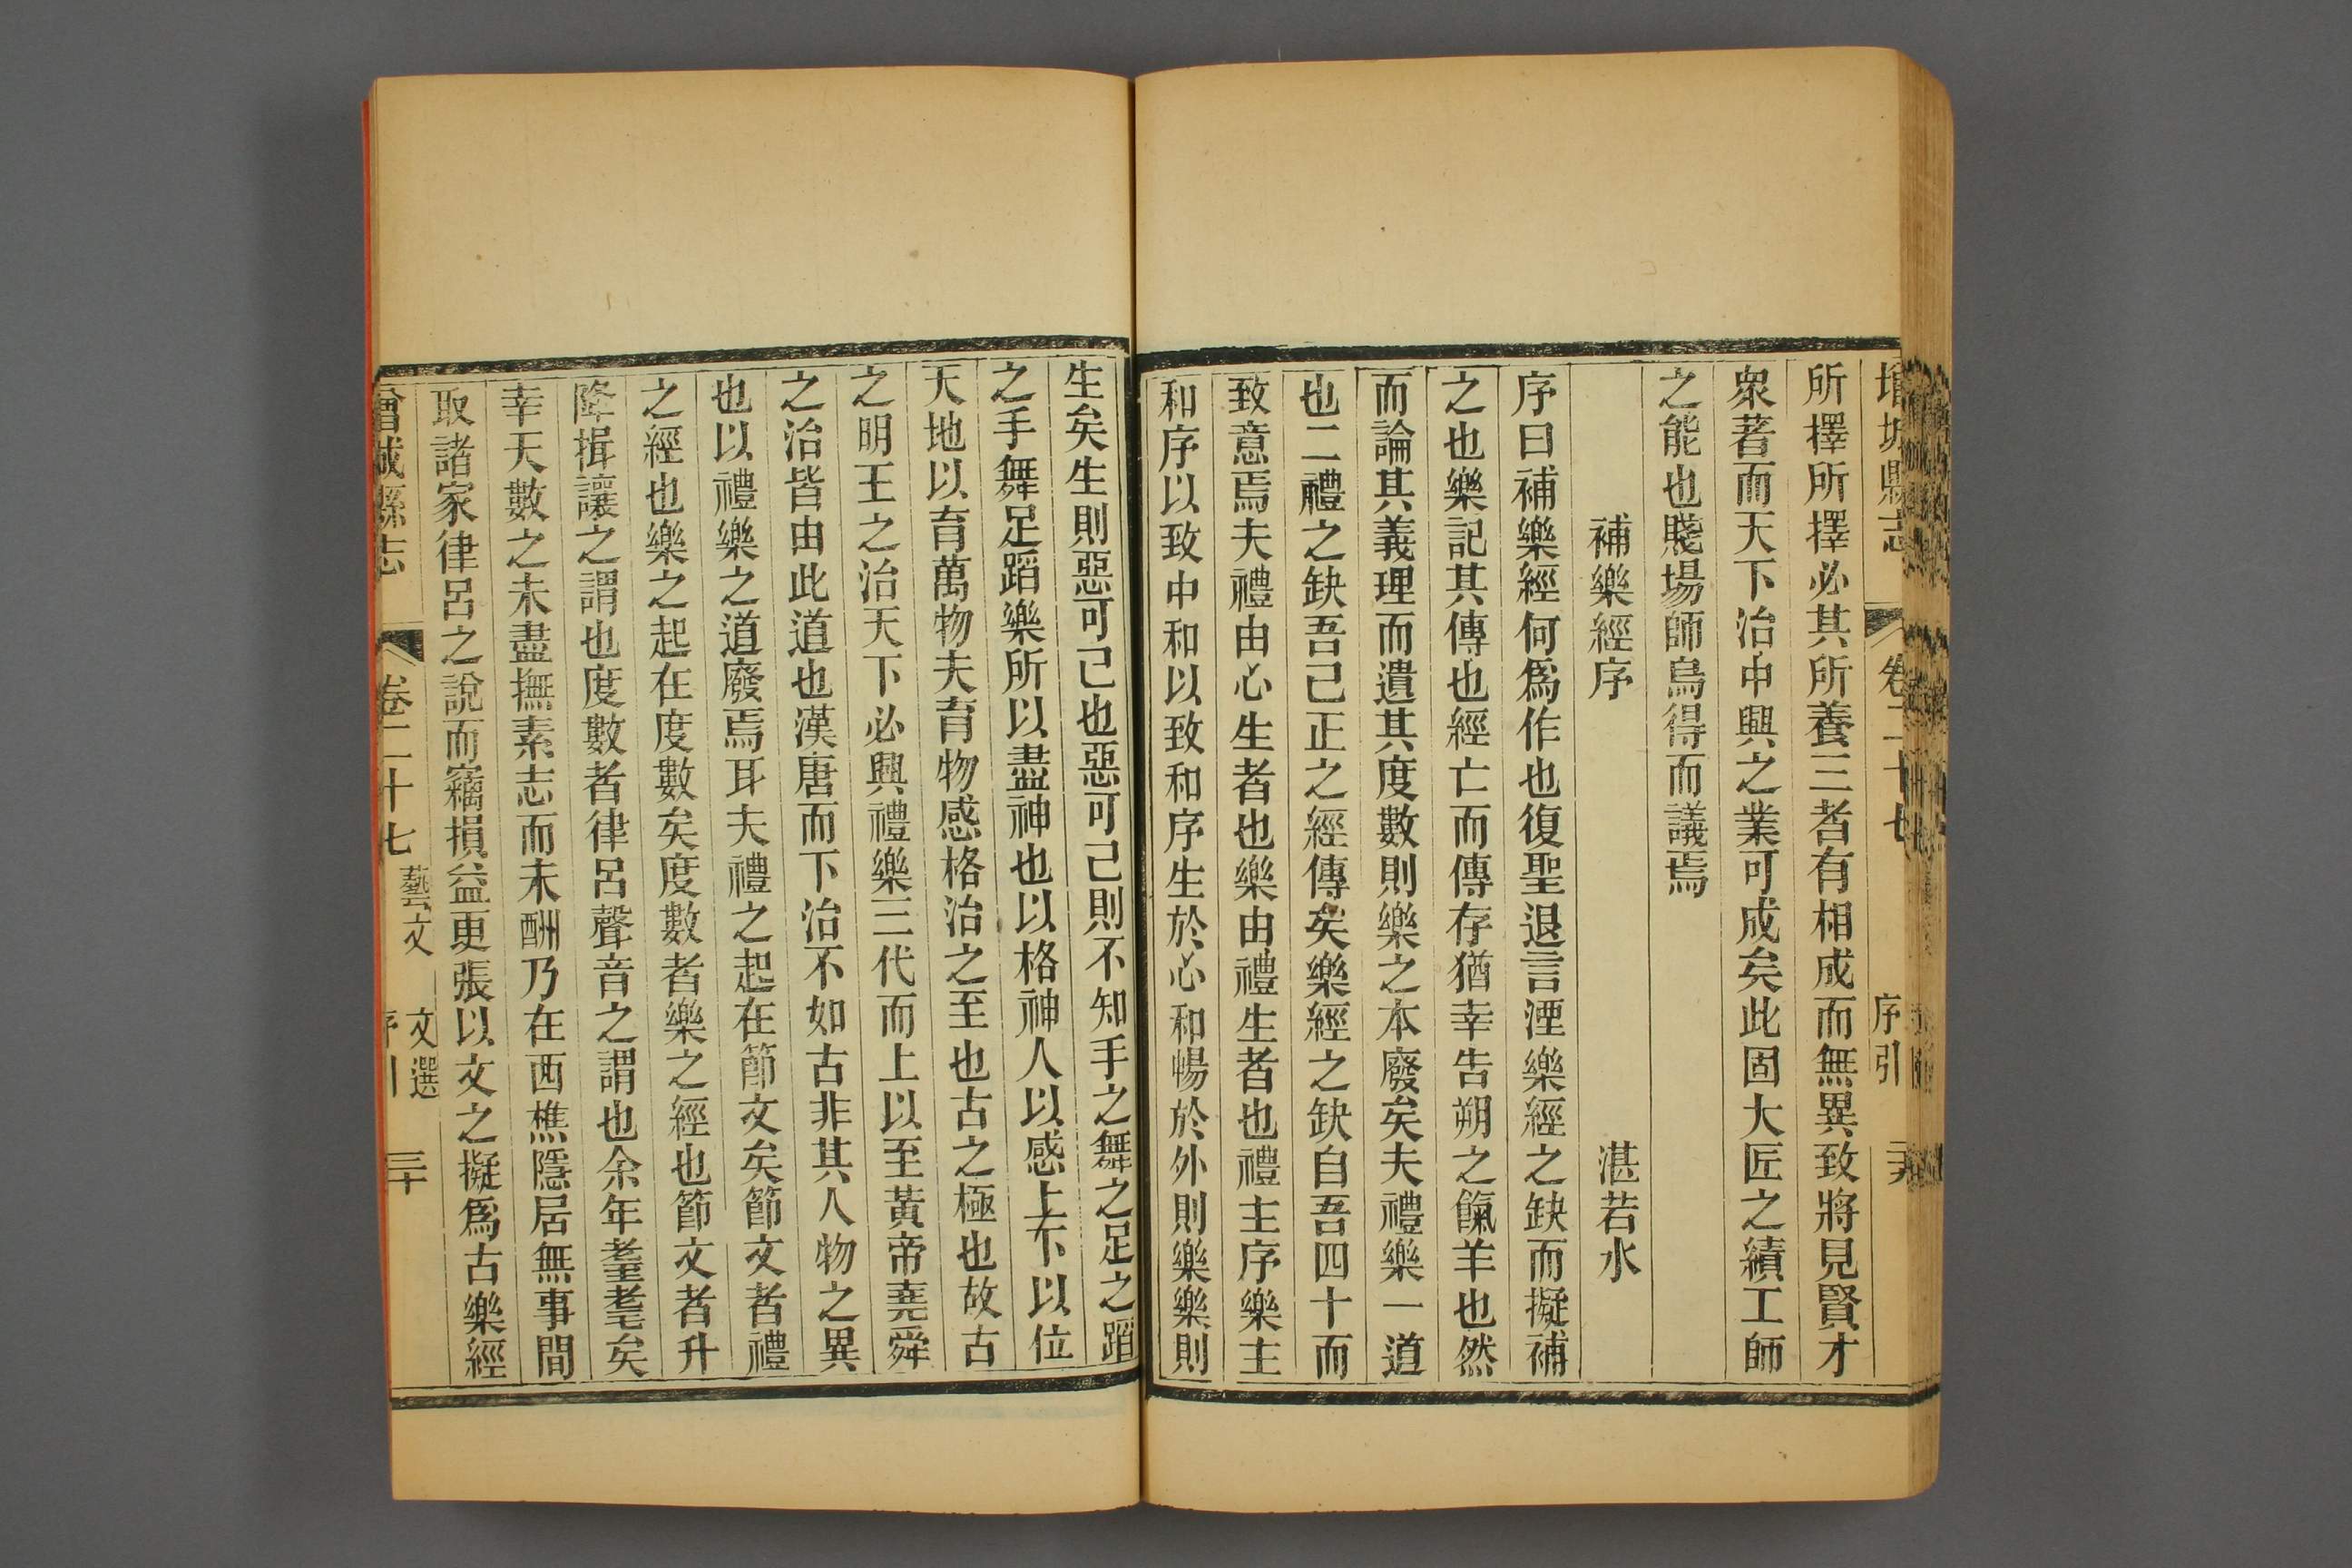 增城縣志 卷二十七 序引
所擇所擇必其所養三者有相成而無異致將見賢才
衆著而天下治中興之業可成矣此固大匠之績工師
之能也賤場師烏得而議焉
補樂經序 湛若水
序曰補樂經何爲作也復聖退言湮樂經之缺而擬補
之也樂記其傳也經亡而傳存猶幸告朔之餼羊也然
而論其義理而遺其度數則樂之本廢矣夫禮樂一道
也二禮之缺吾已正之經傳矣樂經之缺自吾四十而
致意焉夫禮由心生者也樂由禮生者也禮主序樂主
和序以致中和以致和序生於心和暢於外則樂樂則
生矣生則惡可已也惡可已則不知手之舞之足之蹈
之手舞足蹈樂所以盡神也以格神人以感上下以位
天地以育萬物夫育物感格治之至也古之極也故古
之明王之治天下必興禮樂三代而上以至黃帝堯舜
之治皆由此道也漢唐而下治不如古非其人物之異
也以禮樂之道廢焉耳夫禮之起在節文矣節文者禮
之經也樂之起在度數矣度數者樂之經也節文者升
降揖讓之謂也度數者律呂聲音之謂也余年耋耄矣
幸天數之未盡撫素志而未酬乃在西樵隱居無事間
取諸家律呂之說而竊損益更張以文之擬爲古樂經
曾城縣志 卷二十七 藝文 文選 序引 三十